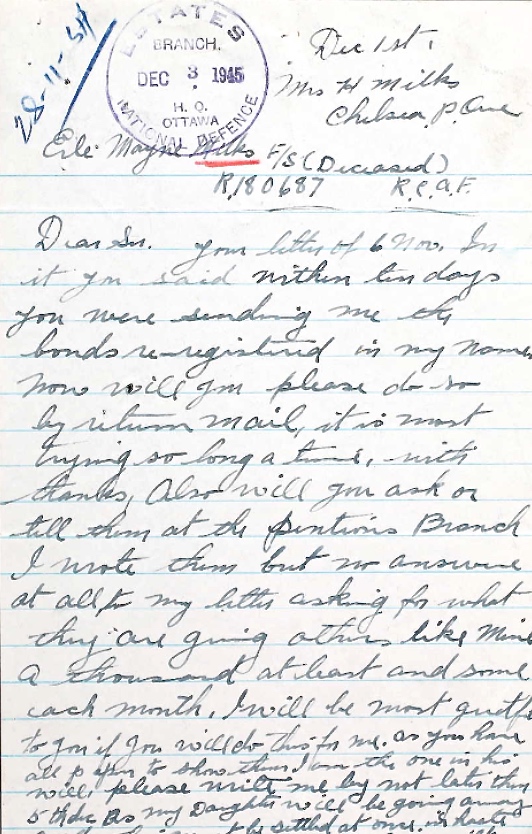 ESTATES
BRANCH.
DEC 3 1945
H. Q.
OTTAWA
NATIONAL DEFENCE
28-11-54
Dec 1st,
Mrs H Milks
Chelsea, P. Que
Erle Mayne Milks F/S (Deceased)
R.180687 R.C.A.F.
Dear Sir. your letter of 6 Nov. In
it you said within ten days
you were sending me the
bonds re-registered in my name
Now will you please do so
by return mail, it is most
trying so long a time, with
thanks, Also will you ask or
tell them at the pentions Branch
I wrote them but no answer
at all, to my letter asking for what
they are giving others like Mine
a thousand at least and some
each month, I will be most
to you if you will do this for me. as you have
all p to show them I am the one in his
will, please write me by not later than
5th dec as my Daughter will be going away
be settled at once, in haste